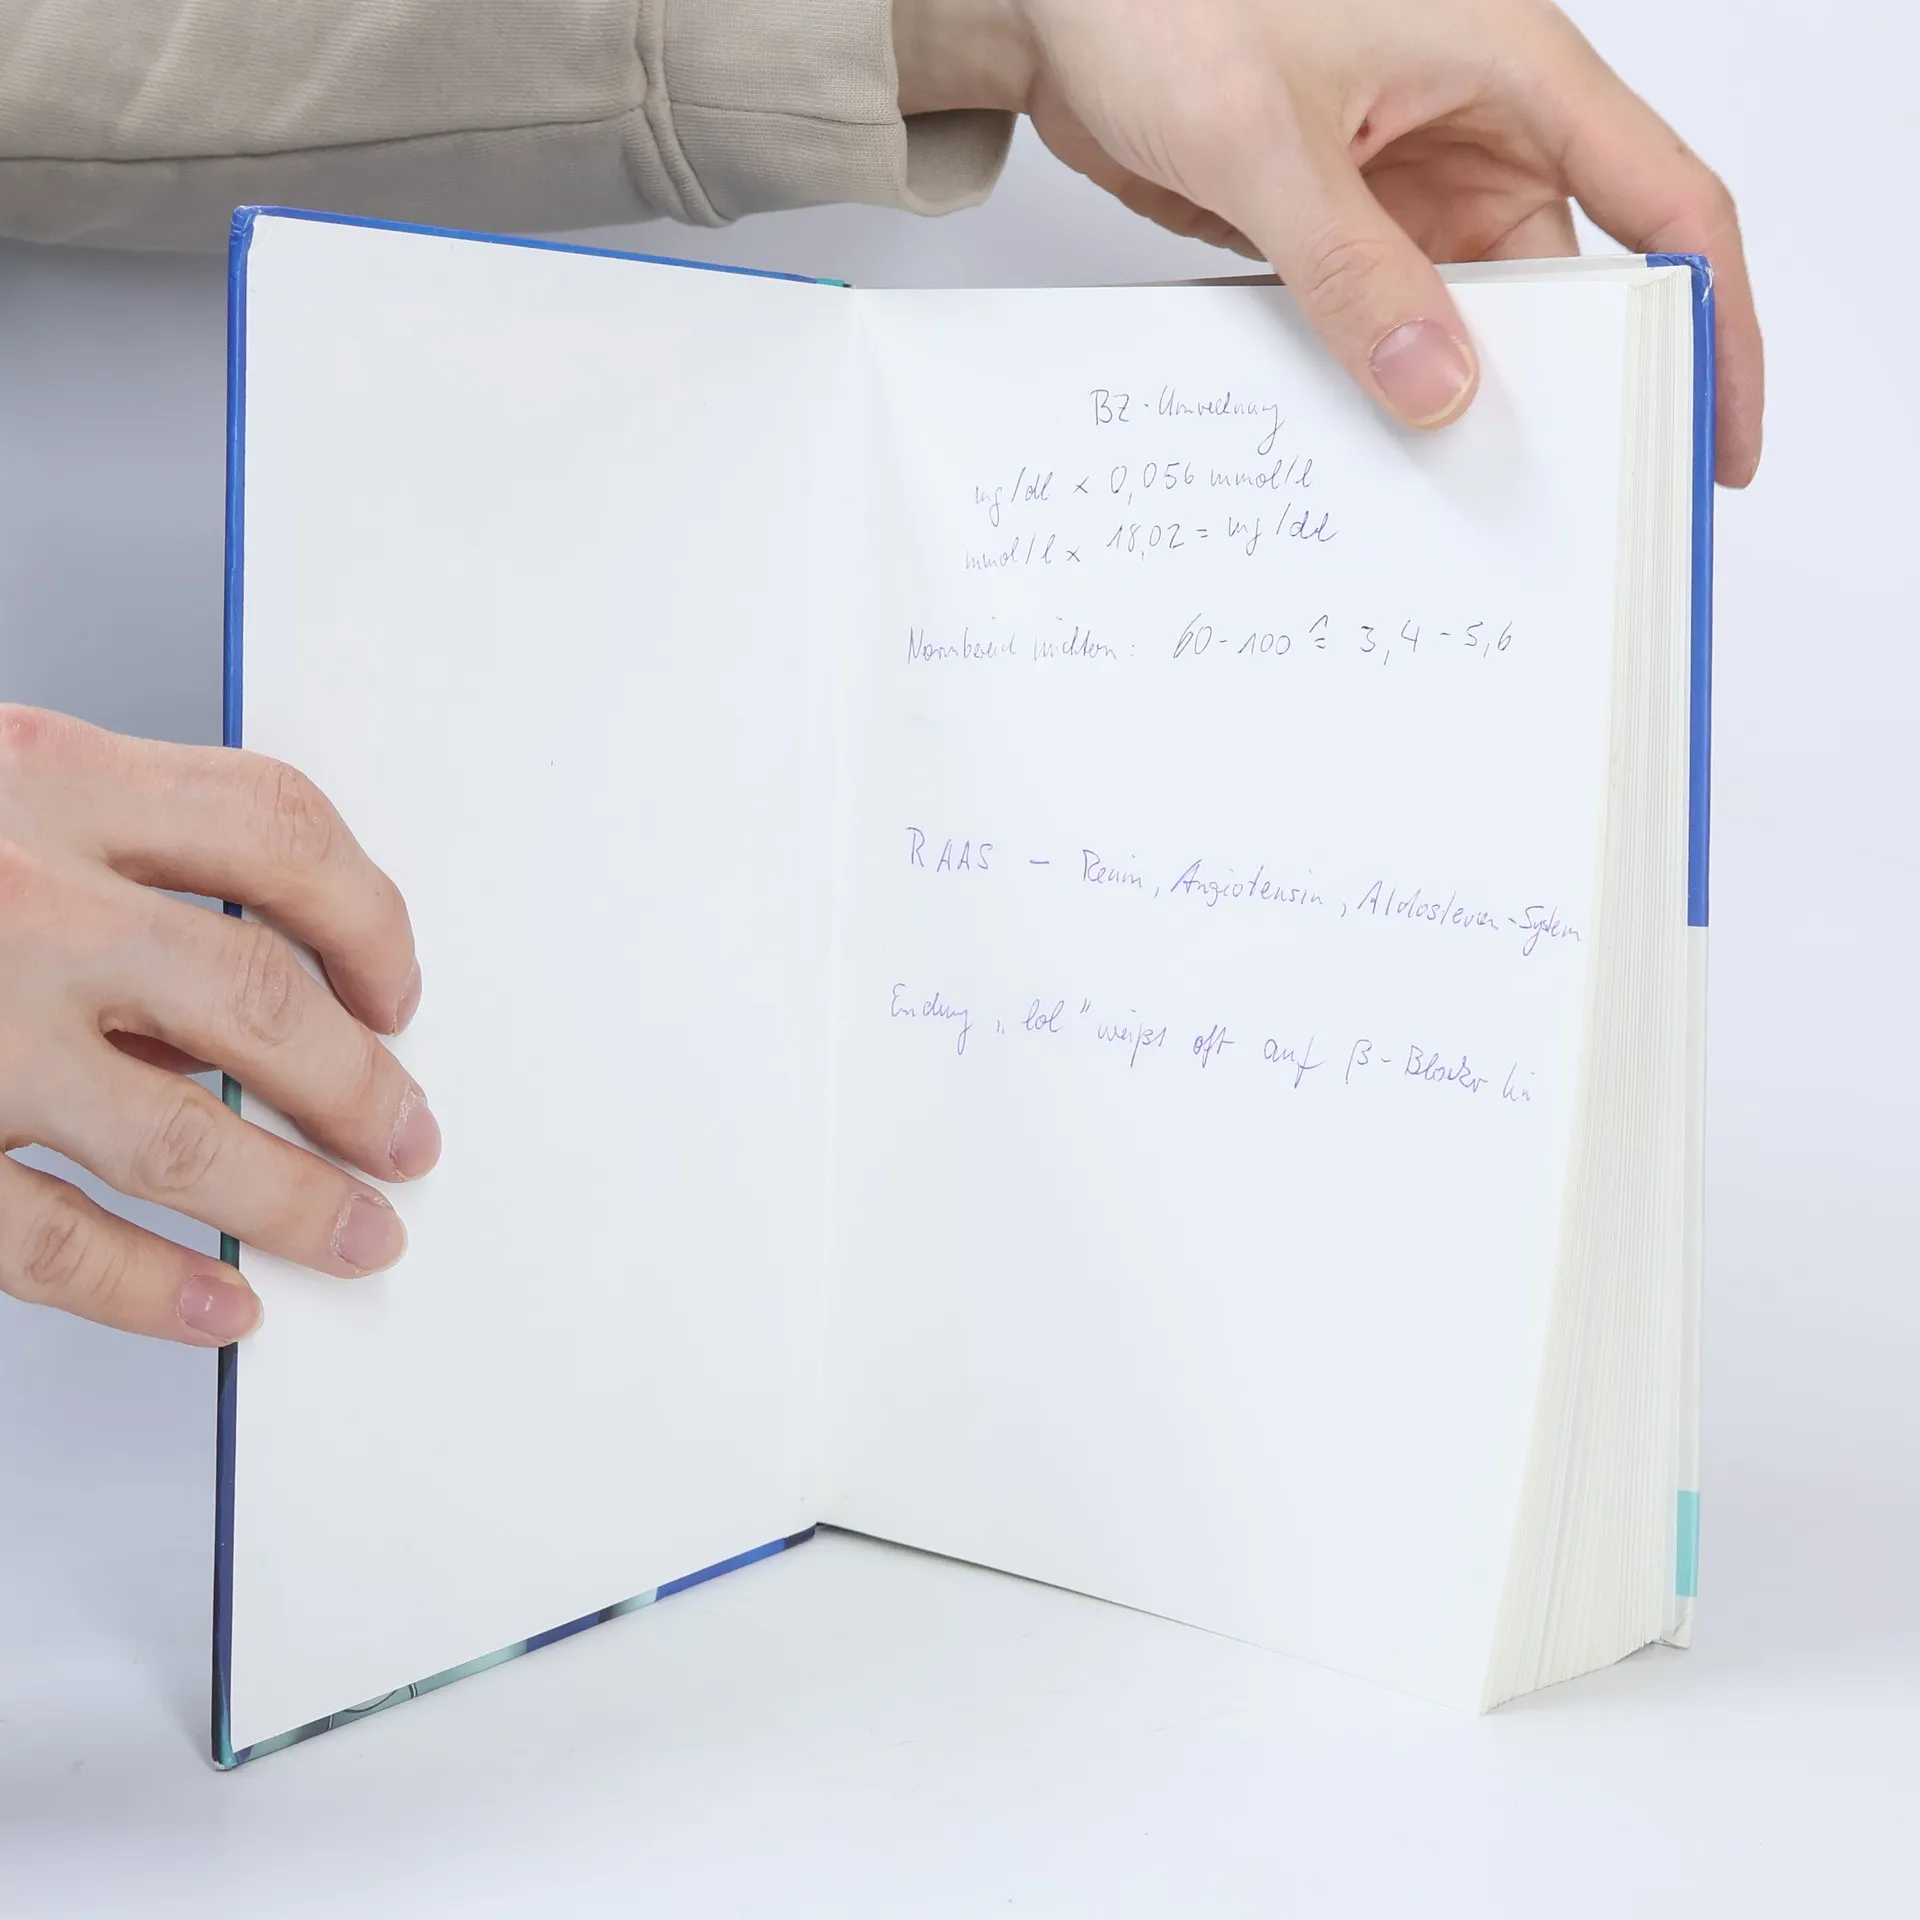 BZ-Umrechnung
mg/dl x 0,056 mmol/l
mmol/l x 18,02 = mg/dl
Normbereich nüchtern: 60-100 ≙ 3,4-5,6
RAAS - Renin, Angiotensin, Aldosteron-System
Endung „lol" weißt oft auf β-Blocker hin